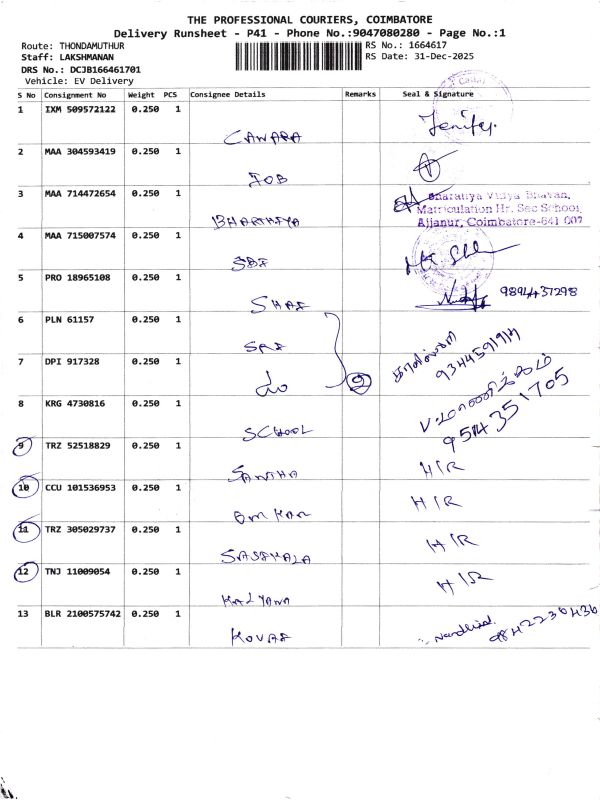 THE PROFESSIONAL COURIERS, COIMBATORE
Delivery Runsheet - P41 - Phone No.:9047080280 - Page No.:1
Route: THONDAMUTHUR
RS No.: 1664617
Staff: LAKSHMANAN
RS Date: 31-Dec-2025
DRS No.: DCJB166461701
Vehicle: EV Delivery
S No Consignment No Weight PCS Consignee Details Remarks Seal & Signature
1 IXM 509572122 0.250 1
CANARA Jenifer
2 MAA 304593419 0.250 1
IOB
3 MAA 714472654 0.250 1
Bharatiya Vidya Bhavan,
Matriculation Hr. Sec School,
Ajjanur, Coimbatore-641 007
BHARTHIYA
4 MAA 715007574 0.250 1
SBI
5 PRO 18965108 0.250 1
9894437298
SHAI
6 PLN 61157 0.250 1
SRI
9344591914
7 DPI 917328 0.250 1
2
8 KRG 4730816 0.250 1
SCHOOL
9514351705
9 TRZ 52518829 0.250 1
SANTHA H/R
10 CCU 101536953 0.250 1
OM KAR H/R
11 TRZ 305029737 0.250 1
SASIKALA H/R
12 TNJ 11009054 0.250 1
KALYANA H/R
13 BLR 2100575742 0.250 1
KOVAI 9842236436